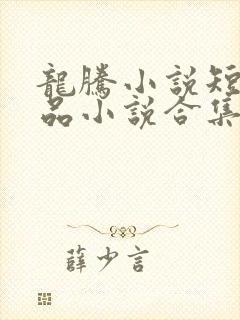 龍騰小說短
品小說合集
薛少言